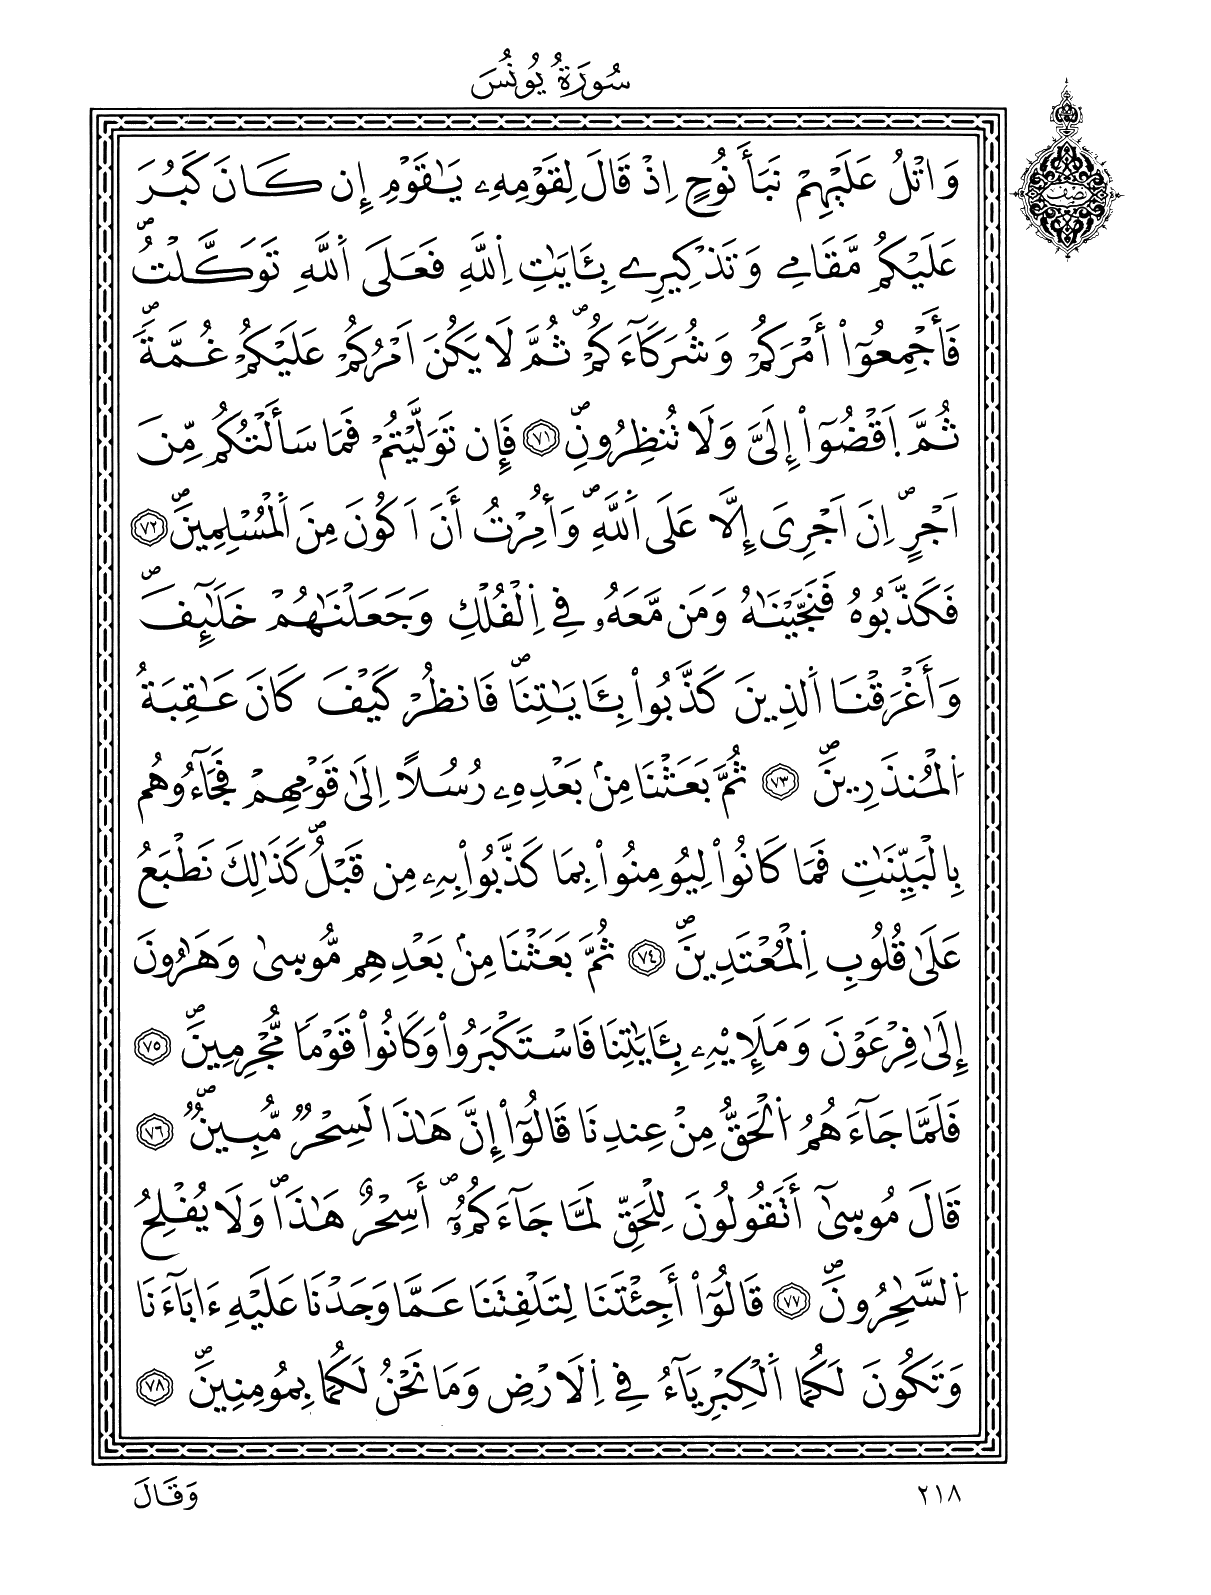 سُورَةُ يُونُسَ
نصف
وَاتْلُ عَلَيْهِمْ نَبَأَ نُوحٍ اِذْ قَالَ لِقَوْمِهِۦ يَٰقَوْمِ إِن كَانَ كَبُرَ
عَلَيْكُم مَّقَامِے وَتَذْكِيرِے بِـَٔايَٰتِ اِ۬للَّهِ فَعَلَى اَ۬للَّهِ تَوَكَّلْتُۖ
فَأَجْمِعُوٓاْ أَمْرَكُمْ وَشُرَكَآءَكُمْۖ ثُمَّ لَا يَكُنَ اَمْرُكُمْ عَلَيْكُمْ غُمَّةٗۖ
ثُمَّ اَ۪قْضُوٓاْ إِلَىَّ وَلَا تُنظِرُونِۖ ٧١ فَإِن تَوَلَّيْتُمْ فَمَا سَأَلْتُكُم مِّنَ
اَجْرٍۖ اِنَ اَجْرِىَ إِلَّا عَلَى اَ۬للَّهِۖ وَأُمِرْتُ أَنَ اَكُونَ مِنَ اَ۬لْمُسْلِمِينَۖ ٧٢
فَكَذَّبُوهُ فَنَجَّيْنَٰهُ وَمَن مَّعَهُۥ فِے اِ۬لْفُلْكِ وَجَعَلْنَٰهُمْ خَلَٰٓئِفَۖ
وَأَغْرَقْنَا اَ۬لذِينَ كَذَّبُواْ بِـَٔايَٰتِنَاۖ فَانظُرْ كَيْفَ كَانَ عَٰقِبَةُ
اُ۬لْمُنذَرِينَۖ ٧٣ ثُمَّ بَعَثْنَا مِنۢ بَعْدِهِۦ رُسُلاً اِلَىٰ قَوْمِهِمْ فَجَآءُوهُم
بِالْبَيِّنَٰتِ فَمَا كَانُواْ لِيُومِنُواْ بِمَا كَذَّبُواْ بِهِۦ مِن قَبْلُۖ كَذَٰلِكَ نَطْبَعُ
عَلَىٰ قُلُوبِ اِ۬لْمُعْتَدِينَۖ ٧٤ ثُمَّ بَعَثْنَا مِنۢ بَعْدِهِم مُّوسىٰ وَهَٰرُونَ
إِلَىٰ فِرْعَوْنَ وَمَلَإِيْهِۦ بِـَٔايَٰتِنَا فَاسْتَكْبَرُواْ وَكَانُواْ قَوْماٗ مُّجْرِمِينَۖ ٧٥
فَلَمَّا جَآءَهُمُ اُ۬لْحَقُّ مِنْ عِندِنَا قَالُوٓاْ إِنَّ هَٰذَا لَسِحْرٞ مُّبِينٞۖ ٧٦
قَالَ مُوسىٰٓ أَتَقُولُونَ لِلْحَقِّ لَمَّا جَآءَكُمُۥٓۖ أَسِحْرٌ هَٰذَاۖ وَلَا يُفْلِحُ
اُ۬لسَّٰحِرُونَۖ ٧٧ قَالُوٓاْ أَجِئْتَنَا لِتَلْفِتَنَا عَمَّا وَجَدْنَا عَلَيْهِ ءَابَآءَنَا
وَتَكُونَ لَكُمَا اَ۬لْكِبْرِيَآءُ فِے اِ۬لَارْضِ وَمَا نَحْنُ لَكُمَا بِمُومِنِينَۖ ٧٨
٢١٨
وَقَالَ